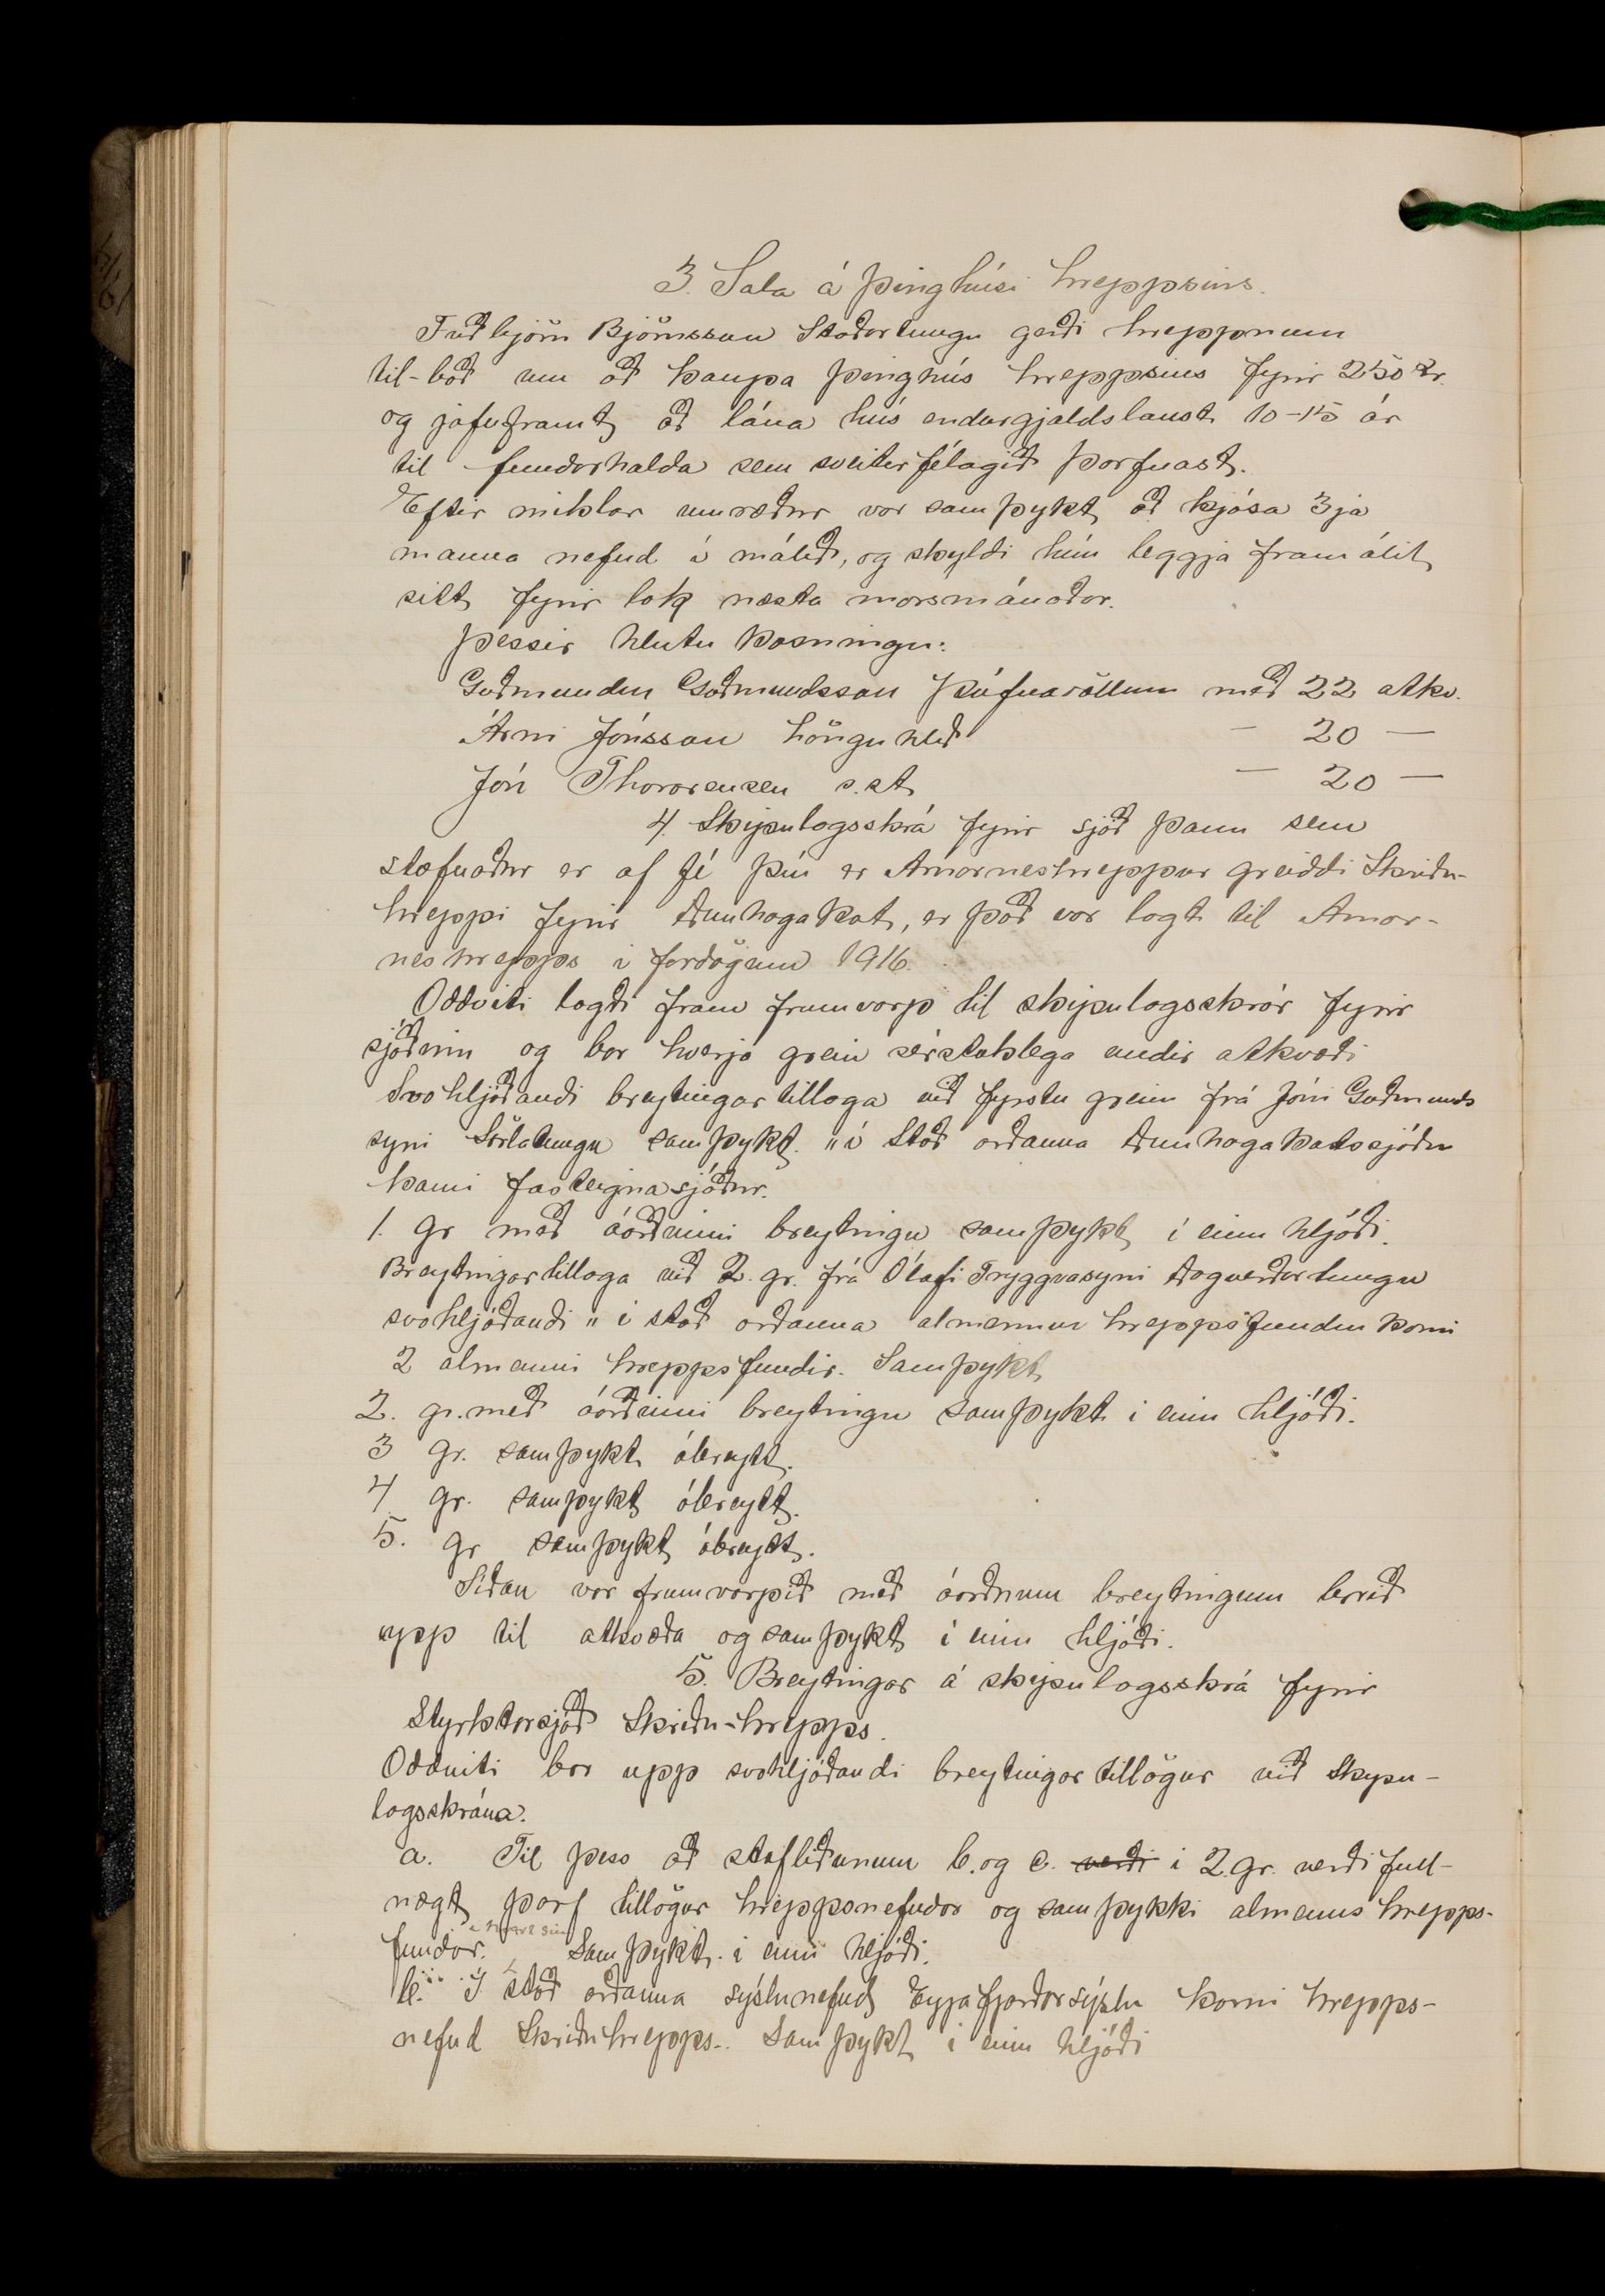 3. Sala á þinghúsi hreppsins.
Friðbjörn Björnsson Staðartungu gerði hreppnum
til-boð um að kaupa þinghús hreppsins fyrir 250 kr.
og jafnframt að lána hús endurgjaldslaust 10-15 ár
til fundarhalda sem sveitarfélagið þarfnast.
Eftir miklar umræður var samþykt að kjósa 3ja
manna nefnd í málið, og skyldi hún leggja fram álit
sitt fyrir lok næsta marsmánaðar.
Þessir hlutu kosningu:
Guðmundur Guðmundsson Þúfnavöllum með 22 atkv.
Árni Jónsson Lönguhlíð — 20 —
Jón Thorarensen s.st — 20 —
4. Skipulagsskrá fyrir sjóð þann sem
stofnaður er af fé því er Arnarneshreppur greiddi Skriðu-
hreppi fyrir Dunhagakot, er það var lagt til Arnar-
neshrepps í fardögum 1916.
Oddviti lagði fram frumvarp til skipulagsskrár fyrir
sjóðinn og bar hverja grein sérstaklega undir atkvæði
Svohljóðandi breytingartillaga við fyrstu grein frá Jóni Guðmunds
syni Sörlatungu samþykt. "í stað orðanna Dunhagakotssjóður
komi fasteignasjóður.
1. gr með áorðinni breytingu samþykt í einu hljóði.
Breytingartillaga við 2. gr. frá Ólafi Tryggvasyni Dagverðartungu
svohljóðandi "í stað orðanna almennur hreppsfundur komi
2 almenni hreppsfundir. Samþykt
2. gr. með áorðinni breytingu samþykt í einu hljóði.
3 gr. samþykt óbreytt.
4 gr. samþykt óbreytt.
5. gr samþykt óbreytt.
Síðan var frumvarpið með áorðnum breytingum borið
upp til atkvæða og samþykt í einu hljóði.
5. Breytingar á skipulagsskrá fyrir
Styrktarsjóð Skriðu-hrepps.
Oddviti bar upp svohljóðandi breytingartillögur við skipu-
lagsskrána.
a. Til þess að stafliðunum b. og c. verði í 2. gr. verði full-
nægt þarf tillögur hreppsnefndar og samþykki almenns hrepps-
fundar. Samþykt í einu hljóði.
b. Í stað orðanna sýslunefnd Eyjafjarðarsýslu komi hrepps-
nefnd Skriðuhrepps. Samþykt í einu hljóði